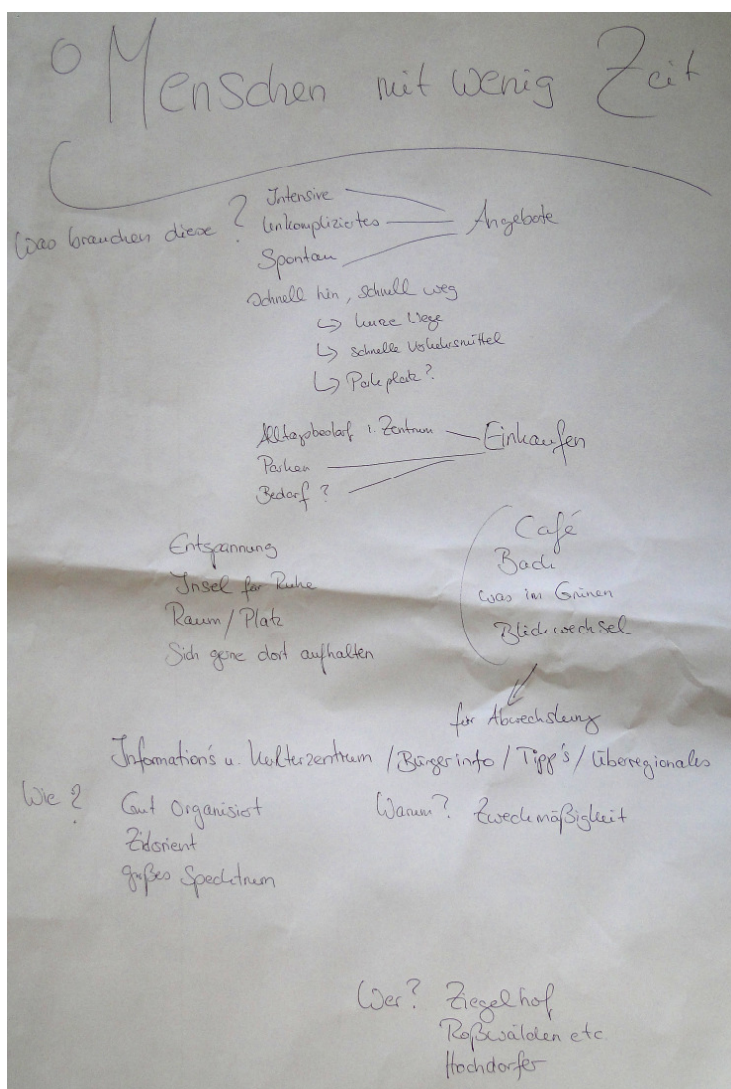 Menschen mit wenig Zeit
Was brauchen diese?
Intensive
Unkompliziertes
Spontan
Angebote
Schnell hin, schnell weg
↳ kurze Wege
↳ schnelle Verkehrsmittel
↳ Parkplatz?
Alltagsbedarf i. Zentrum
Parken
Bedarf?
Einkaufen
Entspannung
Insel für Ruhe
Raum/Platz
Sich gerne dort aufhalten
Café
Bach
was im Grünen
Blickwechsel
für Abwechslung
Information's u. Kulturzentrum / Bürgerinfo / Tipp's / Überegionales
Wie? Gut Organisiert
Zielorient
großes Specktrum
Warum? Zweckmäßigkeit
Wer? Ziegelhof
Roßwälden etc.
Hochdorfer